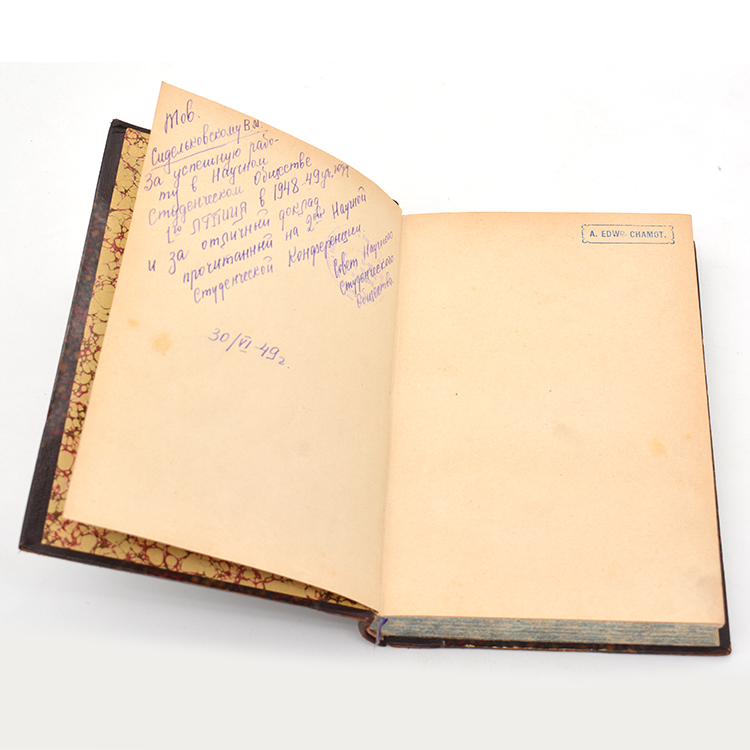 Тов.
Сидельковскому В.М.
За успешную рабо-
ту в Научном
Студенческом Обществе
1го ЛТМИ в 1948-49 уч. году
и за отличный доклад
прочитанный на 2ой Научной
Студенческой Конференции
Совет Научного
Студенческого
Общества
30/VI-49г.
A. EDWD. CHAMOT.